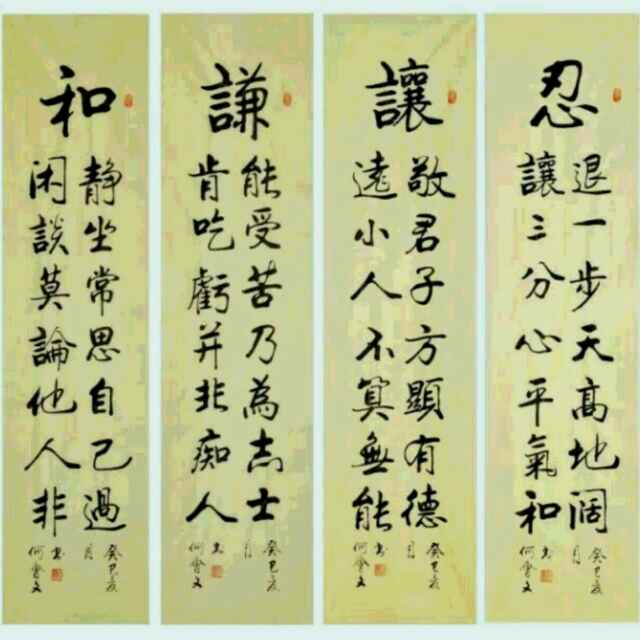 忍
退一步天高地阔
讓三分心平氣和
癸巳夏
月
书
何會文
讓
敬君子方顯有德
遠小人不算無能
癸巳夏
月
书
何會文
謙
能受苦乃為志士
肯吃虧并非痴人
癸巳夏
月
书
何會文
和
静坐常思自己過
闲談莫論他人非
癸巳夏
月
书
何會文